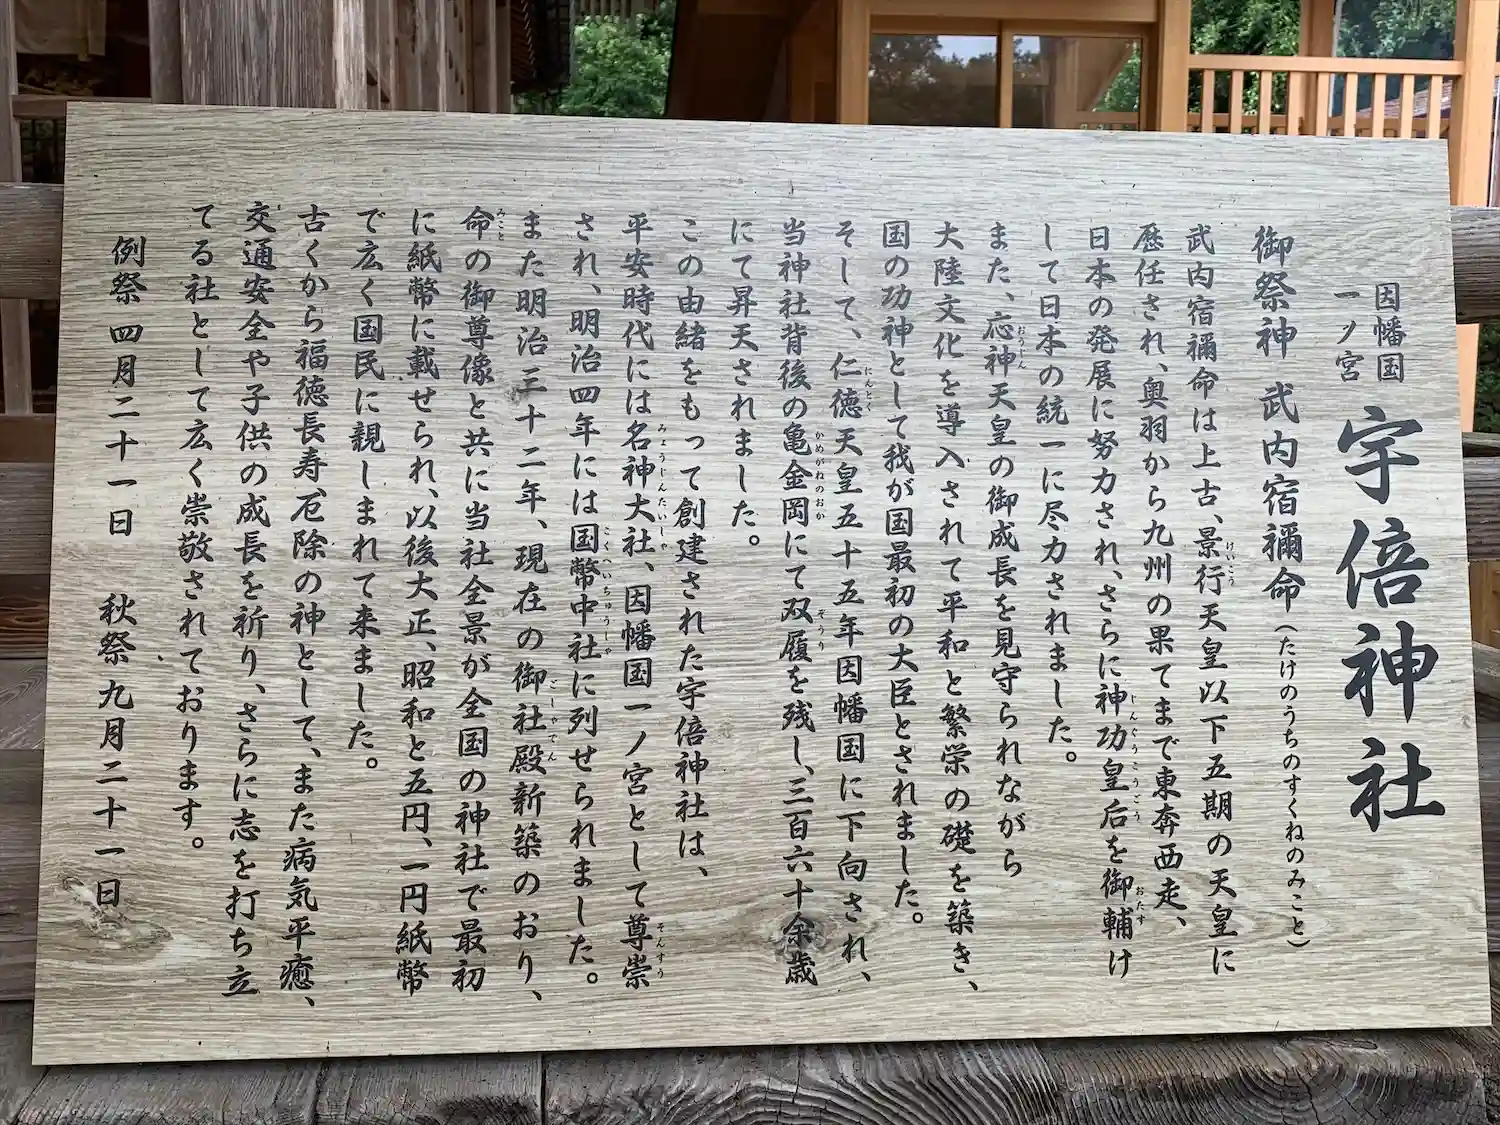 因幡国
一ノ宮
宇倍神社
御祭神 武内宿禰命（たけのうちのすくねのみこと）
武内宿禰命は上古、景行天皇以下五期の天皇に
歴任され、奥羽から九州の果てまで東奔西走、
日本の発展に努力され、さらに神功皇后を御輔け
して日本の統一に尽力されました。
また、応神天皇の御成長を見守られながら
大陸文化を導入されて平和と繁栄の礎を築き、
国の功神として我が国最初の大臣とされました。
そして、仁徳天皇五十五年因幡国に下向され、
当神社背後の亀金岡にて双履を残し、三百六十余歳
にて昇天されました。
この由緒をもって創建された宇倍神社は、
平安時代には名神大社、因幡国一ノ宮として尊崇
され、明治四年には国幣中社に列せられました。
また明治三十二年、現在の御社殿新築のおり、
命の御尊像と共に当社全景が全国の神社で最初
に紙幣に載せられ、以後大正、昭和と五円、一円紙幣
で広く国民に親しまれて来ました。
古くから福徳長寿、厄除の神として、また病気平癒、
交通安全や子供の成長を祈り、さらに志を打ち立
てる社として広く崇敬されております。
例祭 四月二十一日 秋祭 九月二十一日